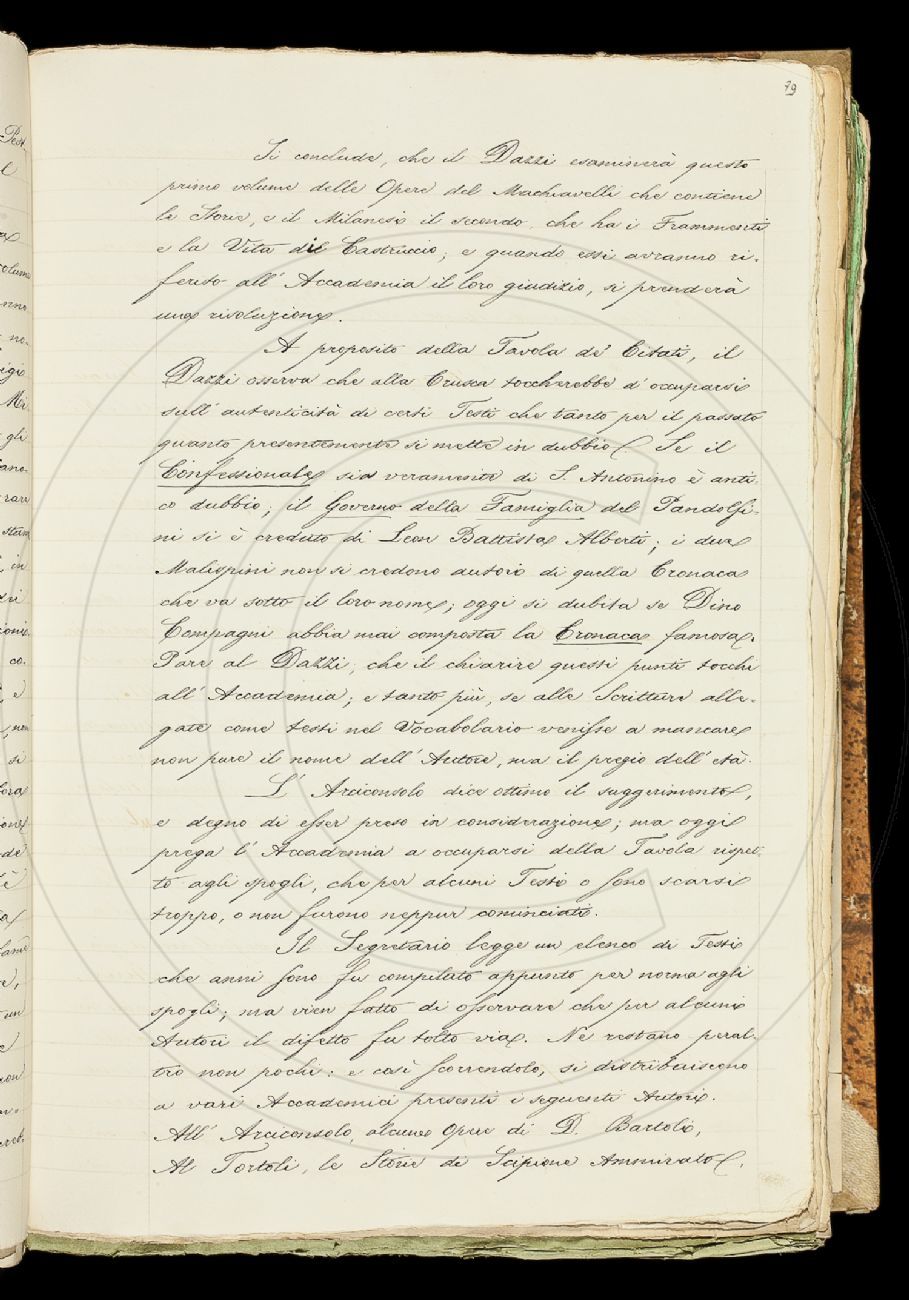 79
Si conclude, che il Dazzi esaminerà questo
primo volume delle Opere del Machiavelli che contiene
le Storie, e il Milanesi il secondo che ha i Frammenti
e la Vita di Castruccio; e quando essi avranno ri-
ferito all' Accademia il loro giudizio, si prenderà
una risoluzione.
A proposito della Tavola de' Citati, il
Dazzi osserva che alla Crusca toccherebbe d' occuparsi
sull' autenticità di certi Testi che tanto per il passato
quanto presentemente si mette in dubbio. Se il
Confessionale sia veramente di S. Antonino è anti-
co dubbio; il Governo della Famiglia del Pandolfi-
ni si è creduto di Leon Battista Alberti; i due
Malispini non si credono autori di quella Cronaca
che va sotto il loro nome; oggi si dubita se Dino
Compagni abbia mai composta la Cronaca famosa.
Pare al Dazzi, che il chiarire questi punti tocchi
all' Accademia; e tanto più, se alle Scritture alle-
gate come testi nel Vocabolario venisse a mancare
non pure il nome dell' Autore, ma il pregio dell' età.
L' Arciconsolo dice ottimo il suggerimento,
e degno di esser preso in considerazione; ma oggi
prega l' Accademia a occuparsi della Tavola rispet-
to agli spogli, che per alcuni Testi o sono scarsi
troppo, o non furono neppur cominciati.
Il Segretario legge un elenco di Testi
che anni sono fu compilato appunto per norma agli
spogli; ma vien fatto di osservare che per alcuni
Autori il difetto fu tolto via. Ne restano peral-
tro non pochi: e così scorrendolo, si distribuiscono
a vari Accademici presenti i seguenti Autori.
All' Arciconsolo, alcune Opere di D. Bartoli,
Al Tortoli, le Storie di Scipione Ammirato,